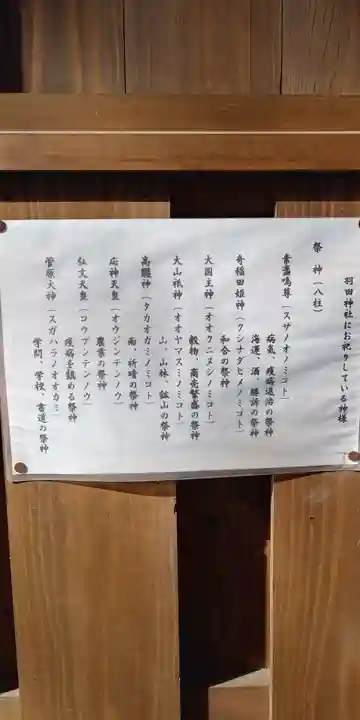 羽田神社にお祀りしている神様
祭神(八柱)
素盞嗚尊(スサノオノミコト)
病気、疫病退治の祭神
海運、酒、勝訴の祭神
奇稲田姫神(クシナダヒメノミコト)
和合の祭神
大国主神(オオクニヌシノミコト)
穀物、商売繁盛の祭神
大山祇神(オオヤマスミノミコト)
山、山林、鉱山の祭神
高龗神(タカオガミノミコト)
雨、祈晴の祭神
応神天皇(オウジンテンノウ)
農業の祭神
弘文天皇(コウブンテンノウ)
疫病を鎮める祭神
菅原大神(スガハラノオオカミ)
学問、学校、書道の祭神